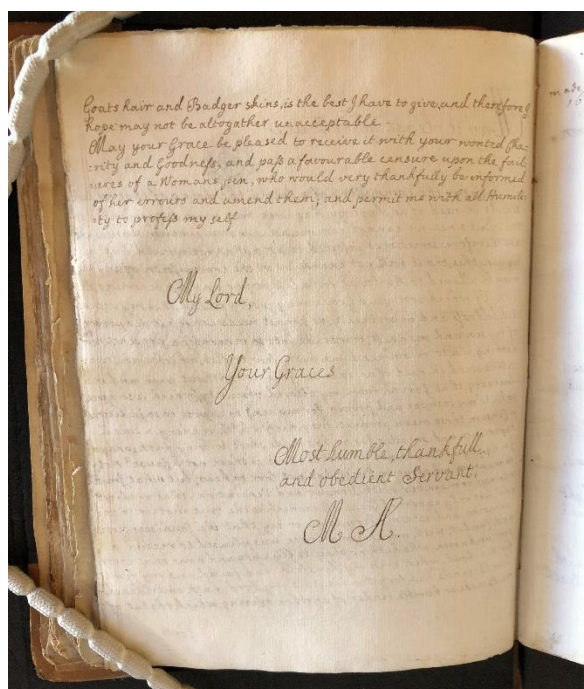 Goats hair and Badger skins, is the best I have to give, and therefore I
hope may not be altogather unacceptable.
May your Grace be pleased to receive it with your wonted Cha-
:rity and Goodness, and pass a favourable censure upon the fail
:ures of a Womans pen, who would very thankfully be informed
of her errours and amend them; and permit me with all Humili-
:ty to profess my self
My Lord,
Your Graces
Most humble, thankfull
and obedient Servant,
M A.
made